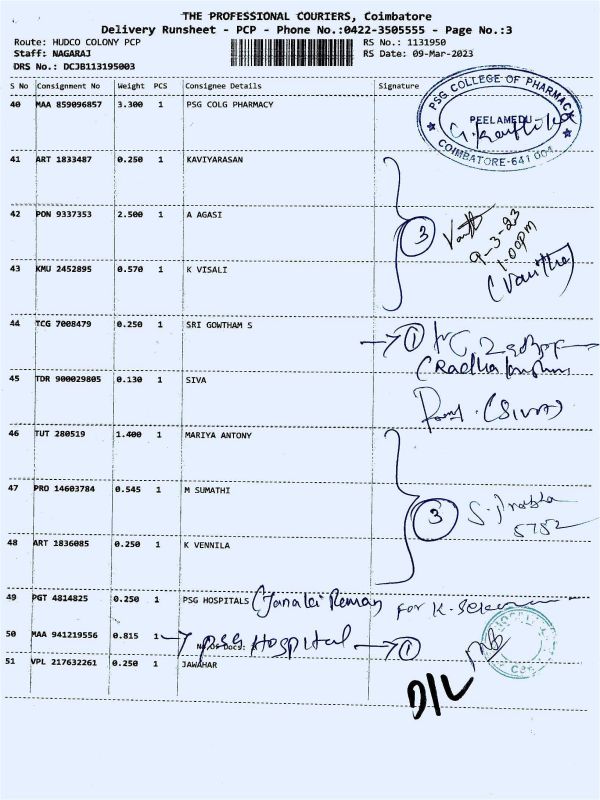 THE PROFESSIONAL COURIERS, Coimbatore
Delivery Runsheet - PCP - Phone No.:0422-3505555 - Page No.:3
Route: HUDCO COLONY PCP RS No.: 1131950
Staff: NAGARAJ RS Date: 09-Mar-2023
DRS No.: DCJB113195003
S No Consignment No Weight PCS Consignee Details Signature
40 MAA 859096857 3.300 1 PSG COLG PHARMACY
PSG COLLEGE OF PHARMACY
PEELAMEDU
COIMBATORE-641 004
41 ART 1833487 0.250 1 KAVIYARASAN
42 PON 9337353 2.500 1 A AGASI
3
9-3-23
1.00pm
(Vanitha)
43 KMU 2452895 0.570 1 K VISALI
44 TCG 7008479 0.250 1 SRI GOWTHAM S
1
45 TDR 900029805 0.130 1 SIVA
(SIVA)
46 TUT 280519 1.400 1 MARIYA ANTONY
47 PRO 14603784 0.545 1 M SUMATHI
3 S. Prabha
5782
48 ART 1836085 0.250 1 K VENNILA
49 PGT 4814825 0.250 1 PSG HOSPITALS (Janaki Raman) for K.
50 MAA 941219556 0.815 1 PSG Hospital 1
No. of Docs:
51 VPL 217632261 0.250 1 JAWAHAR
D/L